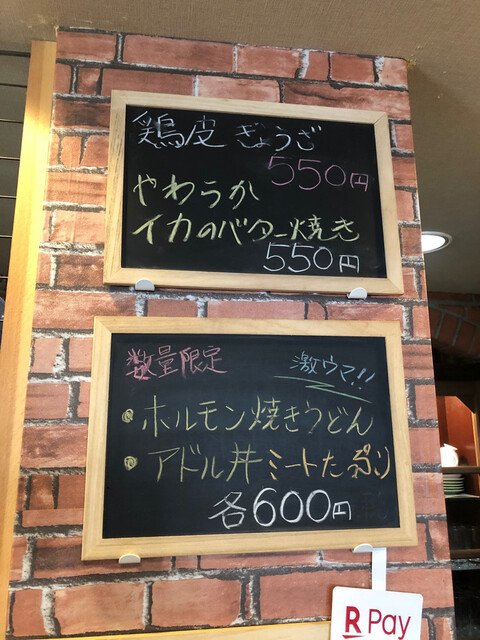 鶏皮 ぎょうざ
550円
やわらか
イカのバター焼き
550円
数量限定 激ウマ!!
・ホルモン焼きうどん
・アドル丼ミートたっぷり
各600円
R Pay